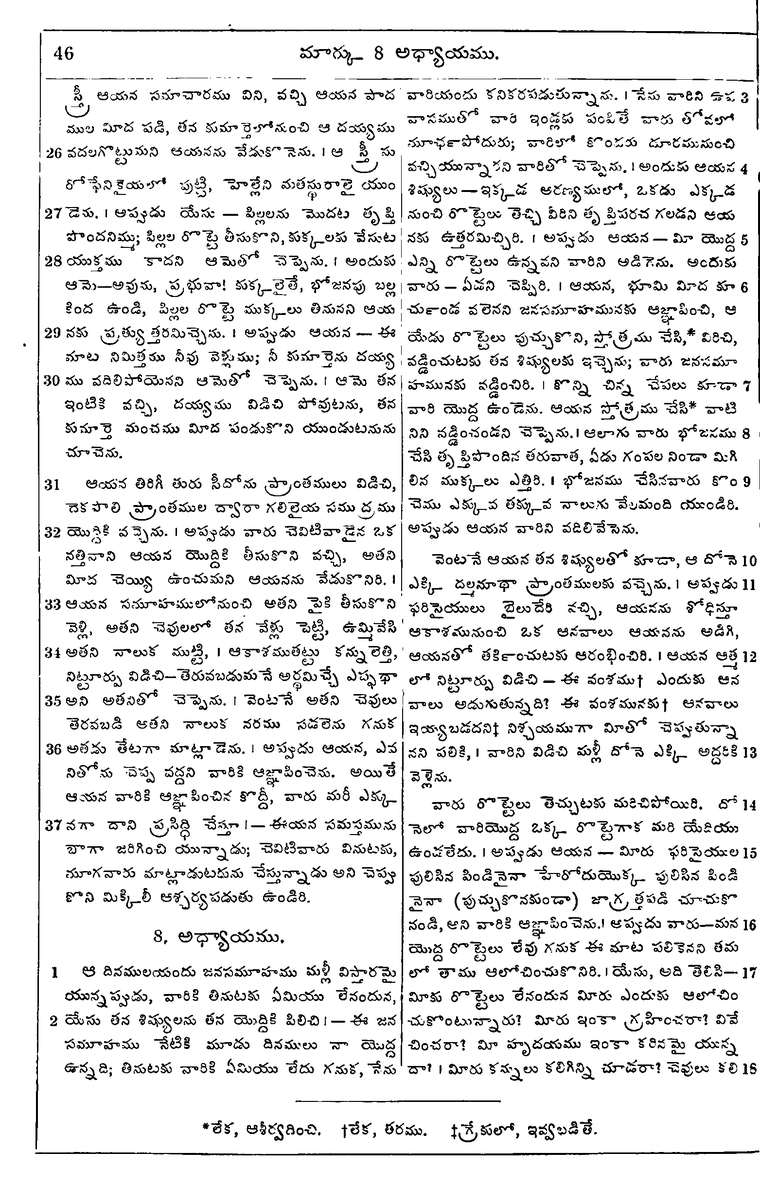 46 మార్కు 8 అధ్యాయము.
స్త్రీ ఆయన సమాచారము విని, వచ్చి ఆయన పాద
ముల మీద పడి, తన కుమార్తెలోనుంచి ఆ దయ్యము
26 వదలగొట్టుమని ఆయనను వేడుకొనెను. । ఆ స్త్రీ సు
రోఫేనికైయలో పుట్టి, హెల్లేని మతస్థురాలై యుం
27 డెను. । అప్పుడు యేసు — పిల్లలను మొదట తృప్తి
పొందనిమ్ము; పిల్లల రొట్టె తీసుకొని, కుక్కలకు వేసుట
28 యుక్తము కాదని ఆమెతో చెప్పెను. । అందుకు
ఆమె—అవును, ప్రభువా! కుక్కలైతే, భోజనపు బల్ల
కింద ఉండి, పిల్లల రొట్టె ముక్కలు తినునని ఆయ
29 నకు ప్రత్యుత్తరమిచ్చెను. । అప్పుడు ఆయన — ఈ
మాట నిమిత్తము నీవు వెళ్లుము; నీ కుమార్తెను దయ్య
30 ము వదిలిపోయెనని ఆమెతో చెప్పెను. । ఆమె తన
ఇంటికి వచ్చి, దయ్యము విడిచి పోవుటను, తన
కుమార్తె మంచము మీద పండుకొని యుండుటనును
చూచెను.
31 ఆయన తిరిగీ తురు సీదోను ప్రాంతములు విడిచి,
దెకపొలి ప్రాంతముల ద్వారా గలిలైయ సముద్రము
32 యొద్దికి వచ్చెను. । అప్పుడు వారు చెవిటివాడైన ఒక
నత్తివాని ఆయన యొద్దికి తీసుకొని వచ్చి, అతని
మీద చెయ్యి ఉంచుమని ఆయనను వేడుకొనిరి. ।
33 ఆయన సమూహములోనుంచి అతని పైకి తీసుకొని
వెళ్లి, అతని చెవులలో తన వేళ్లు పెట్టి, ఉమ్మివేసి
34 అతని నాలుక ముట్టి, । ఆకాశముతట్టు కన్నులెత్తి,
నిట్టూర్పు విడిచి—తెరువబడుమనే అర్థమిచ్చే ఎప్ఫథా
35 అని అతనితో చెప్పెను. । వెంటనే అతని చెవులు
తెరవబడి అతని నాలుక నరము సడలెను గనుక
36 అతడు తేటగా మాట్లాడెను. । అప్పుడు ఆయన, ఎవ
నితోను చెప్ప వద్దని వారికి ఆజ్ఞాపించెను. అయితే
ఆయన వారికి ఆజ్ఞాపించిన కొద్దీ, వారు మరీ ఎక్కు
37 వగా దాని ప్రసిద్ధి చేస్తూ।—ఈయన సమస్తమును
బాగా జరిగించి యున్నాడు; చెవిటివారు వినుటకు,
మూగవారు మాట్లాడుటకును చేస్తున్నాడు అని చెప్పు
కొని మిక్కిలీ ఆశ్చర్యపడుతు ఉండిరి.
8. అధ్యాయము.
1 ఆ దినములయందు జనసమూహము మళ్లీ విస్తారమై
యున్నప్పుడు, వారికి తినుటకు ఏమియు లేనందున,
2 యేసు తన శిష్యులను తన యొద్దికి పిలిచి। — ఈ జన
సమూహము నేటికి మూడు దినములు నా యొద్ద
ఉన్నది; తినుటకు వారికి ఏమియు లేదు గనుక, నేను
వారియందు కనికరపడుతున్నాను. । నేను వారిని ఉప 3
వాసముతో వారి ఇండ్లకు పంపితే వారు తోవలో
మూర్ఛపోదురు; వారిలో కొందరు దూరమునుంచి
వచ్చియున్నారని వారితో చెప్పెను. । అందుకు ఆయన 4
శిష్యులు — ఇక్కడ అరణ్యములో, ఒకడు ఎక్కడ
నుంచి రొట్టెలు తెచ్చి వీరిని తృప్తిపరచ గలడని ఆయ
నకు ఉత్తరమిచ్చిరి. । అప్పుడు ఆయన — మీ యొద్ద 5
ఎన్ని రొట్టెలు ఉన్నవని వారిని అడిగెను. అందుకు
వారు — ఏడని చెప్పిరి. । ఆయన, భూమి మీద కూ 6
చుండ వలెనని జనసమూహమునకు ఆజ్ఞాపించి, ఆ
యేడు రొట్టెలు పుచ్చుకొని, స్తోత్రము చేసి,* విరిచి,
వడ్డించుటకు తన శిష్యులకు ఇచ్చెను; వారు జనసమూ
హమునకు వడ్డించిరి. । కొన్ని చిన్న చేపలు కూడా 7
వారి యొద్ద ఉండెను. ఆయన స్తోత్రము చేసి* వాటి
నిని వడ్డించండని చెప్పెను. । ఆలాగు వారు భోజనము 8
చేసి తృప్తిపొందిన తరువాత, ఏడు గంపల నిండా మిగి
లిన ముక్కలు ఎత్తిరి. । భోజనము చేసినవారు కొం 9
చెము ఎక్కువ తక్కువ నాలుగు వేలమంది యుండిరి.
అప్పుడు ఆయన వారిని వదిలివేసెను.
వెంటనే ఆయన తన శిష్యులతో కూడా, ఆ దోనె 10
ఎక్కి దల్మనూథా ప్రాంతములకు వచ్చెను. । అప్పుడు 11
ఫరిసైయులు బైలుదేరి వచ్చి, ఆయనను శోధిస్తూ
ఆకాశమునుంచి ఒక ఆనవాలు ఆయనను అడిగి,
ఆయనతో తర్కించుటకు ఆరంభించిరి. । ఆయన ఆత్మ 12
లో నిట్టూర్పు విడిచి — ఈ వంశము† ఎందుకు ఆన
వాలు అడుగుతున్నది? ఈ వంశమునకు† ఆనవాలు
ఇయ్యబడదని‡ నిశ్చయముగా మీతో చెప్పుతున్నా
నని పలికి, । వారిని విడిచి మళ్లీ దోనె ఎక్కి అద్దరికి 13
వెళ్లెను.
వారు రొట్టెలు తెచ్చుటకు మరిచిపోయిరి. దో 14
నెలో వారియొద్ద ఒక్క రొట్టెగాక మరి యేదియు
ఉండలేదు. । అప్పుడు ఆయన — మీరు ఫరిసైయుల 15
పులిసిన పిండినైనా హేరోదుయొక్క పులిసిన పిండి
నైనా (పుచ్చుకొనకుండా) జాగ్రత్తపడి చూచుకొ
నండి, అని వారికి ఆజ్ఞాపించెను.। అప్పుడు వారు—మన 16
యొద్ద రొట్టెలు లేవు గనుక ఈ మాట పలికెనని తమ
లో తాము ఆలోచించుకొనిరి. । యేసు, అది తెలిసి— 17
మీకు రొట్టెలు లేనందున మీరు ఎందుకు ఆలోచిం
చుకొంటున్నారు? మీరు ఇంకా గ్రహించరా? వివే
చించరా? మీ హృదయము ఇంకా కఠినమై యున్న
దా? । మీరు కన్నులు కలిగిన్ని చూడరా? చెవులు కలి 18
*లేక, ఆశీర్వదించి. †లేక, తరము. ‡గ్రేకులో, ఇవ్వబడితే.